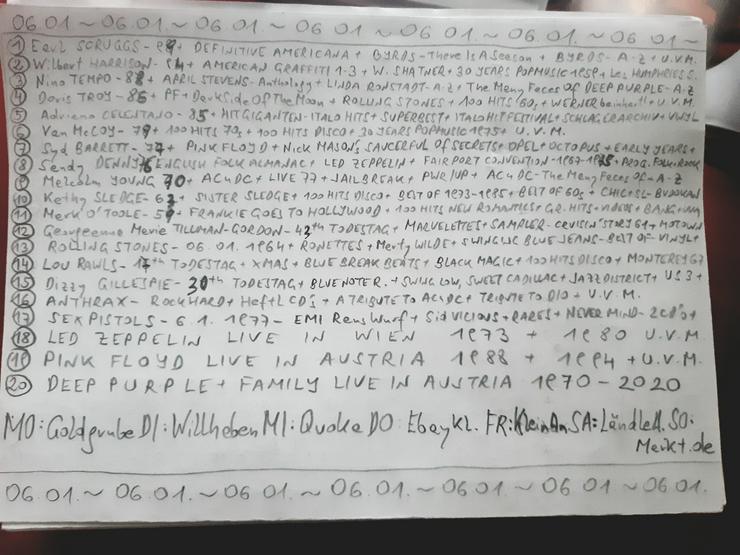 06.01 ~ 06.01. ~ 06.01. ~ 06.01. ~ 06.01. ~ 06.01 ~ 06.01 ~
① Earl SCRUGGS - 99 + DEFINITIVE AMERICANA + BYRDS - There Is A Season + BYRDS - A-Z + U.V.M.
② Wilbert HARRISON - 94 + AMERICAN GRAFFITI 1-3 + W. SHATNER + 30 YEARS POPMUSIC 1959 + Les HUMPHRIES S.
③ Nino TEMPO - 88 + APRIL STEVENS - Anthology + LINDA RONSTADT - A-Z + The Many Faces OF DEEP PURPLE - A-Z
④ Doris TROY - 86 + PF + Dark Side Of The Moon + ROLLING STONES + 100 HITS 60s + WERNER beinhart! + U.V.M.
⑤ Adriano CELENTANO - 85 + HIT GIGANTEN - ITALO HITS + SUPERBEST + ITALO HIT FESTIVAL + SCHLAGERARCHIV + VINYL
⑥ Van McCOY - 79 + 100 HITS 70s + 100 HITS DISCO + 30 YEARS POPMUSIC 1975 + U.V.M.
⑦ Syd BARRETT - 77 + PINK FLOYD + NICK MASON'S SAUCERFUL OF SECRETS + OPEL + OCTOPUS + EARLY YEARS +
⑧ Sandy DENNY 76 ENGLISH FOLK ALMANAC + LED ZEPPELIN + FAIRPORT CONVENTION - 1967-1985 + PROG. FOLK + ROCK
⑨ Malcolm YOUNG 70 + AC/DC + LIVE 77 + JAILBREAK + PWR/UP + AC/DC - The Many Faces OF - A-Z
⑩ Kathy SLEDGE - 63 + SISTER SLEDGE + 100 HITS DISCO + BEST OF 1973-1985 + BEST OF 60s + CHIC + SL - BUDOKAN
⑪ Mark O'TOOLE - 59 + FRANKIE GOES TO HOLLYWOOD + 100 HITS NEW ROMANTICS + GR. HITS + VIDEOS + BANG +
⑫ Georgeanna Marie TILLMAN-GORDON - 43th TODESTAG + MARVELETTES + SAMPLER - CRUISIN' STORY 61 + MOTOWN
⑬ ROLLING STONES - 06.01.1964 + RONETTES + Marty WILDE + SWINGING BLUE JEANS - BEST OF - VINYL +
⑭ LOU RAWLS - 17th TODESTAG + XMAS + BLUE BREAK BEATS + BLACK MAGIC + 100 HITS DISCO + MONTEREY 67
⑮ Dizzy GILLESPIE - 30th TODESTAG + BLUENOTER. + SWING LOW, SWEET CADILLAC + JAZZ DISTRICT + US 3 +
⑯ ANTHRAX - ROCK HARD + Heft + CD's + A TRIBUTE TO AC/DC + TRIBUTE TO DIO + U.V.M.
⑰ SEX PISTOLS - 6.1.1977 - EMI Rauswurf + Sid VICIOUS + RARES + NEVER MIND - 2CD's +
⑱ LED ZEPPELIN LIVE IN WIEN 1973 + 1980 U.V.M.
⑲ PINK FLOYD LIVE IN AUSTRIA 1988 + 1994 + U.V.M.
⑳ DEEP PURPLE + FAMILY LIVE IN AUSTRIA 1970 - 2020
MO: Goldgrube DI: Willhaben MI: Quoka DO: Ebay KL. FR: KleinAn SA: LändleA. SO:
Markt.de
06.01. ~ 06.01. ~ 06.01. ~ 06.01. ~ 06.01. ~ 06.01 ~ 06.01.